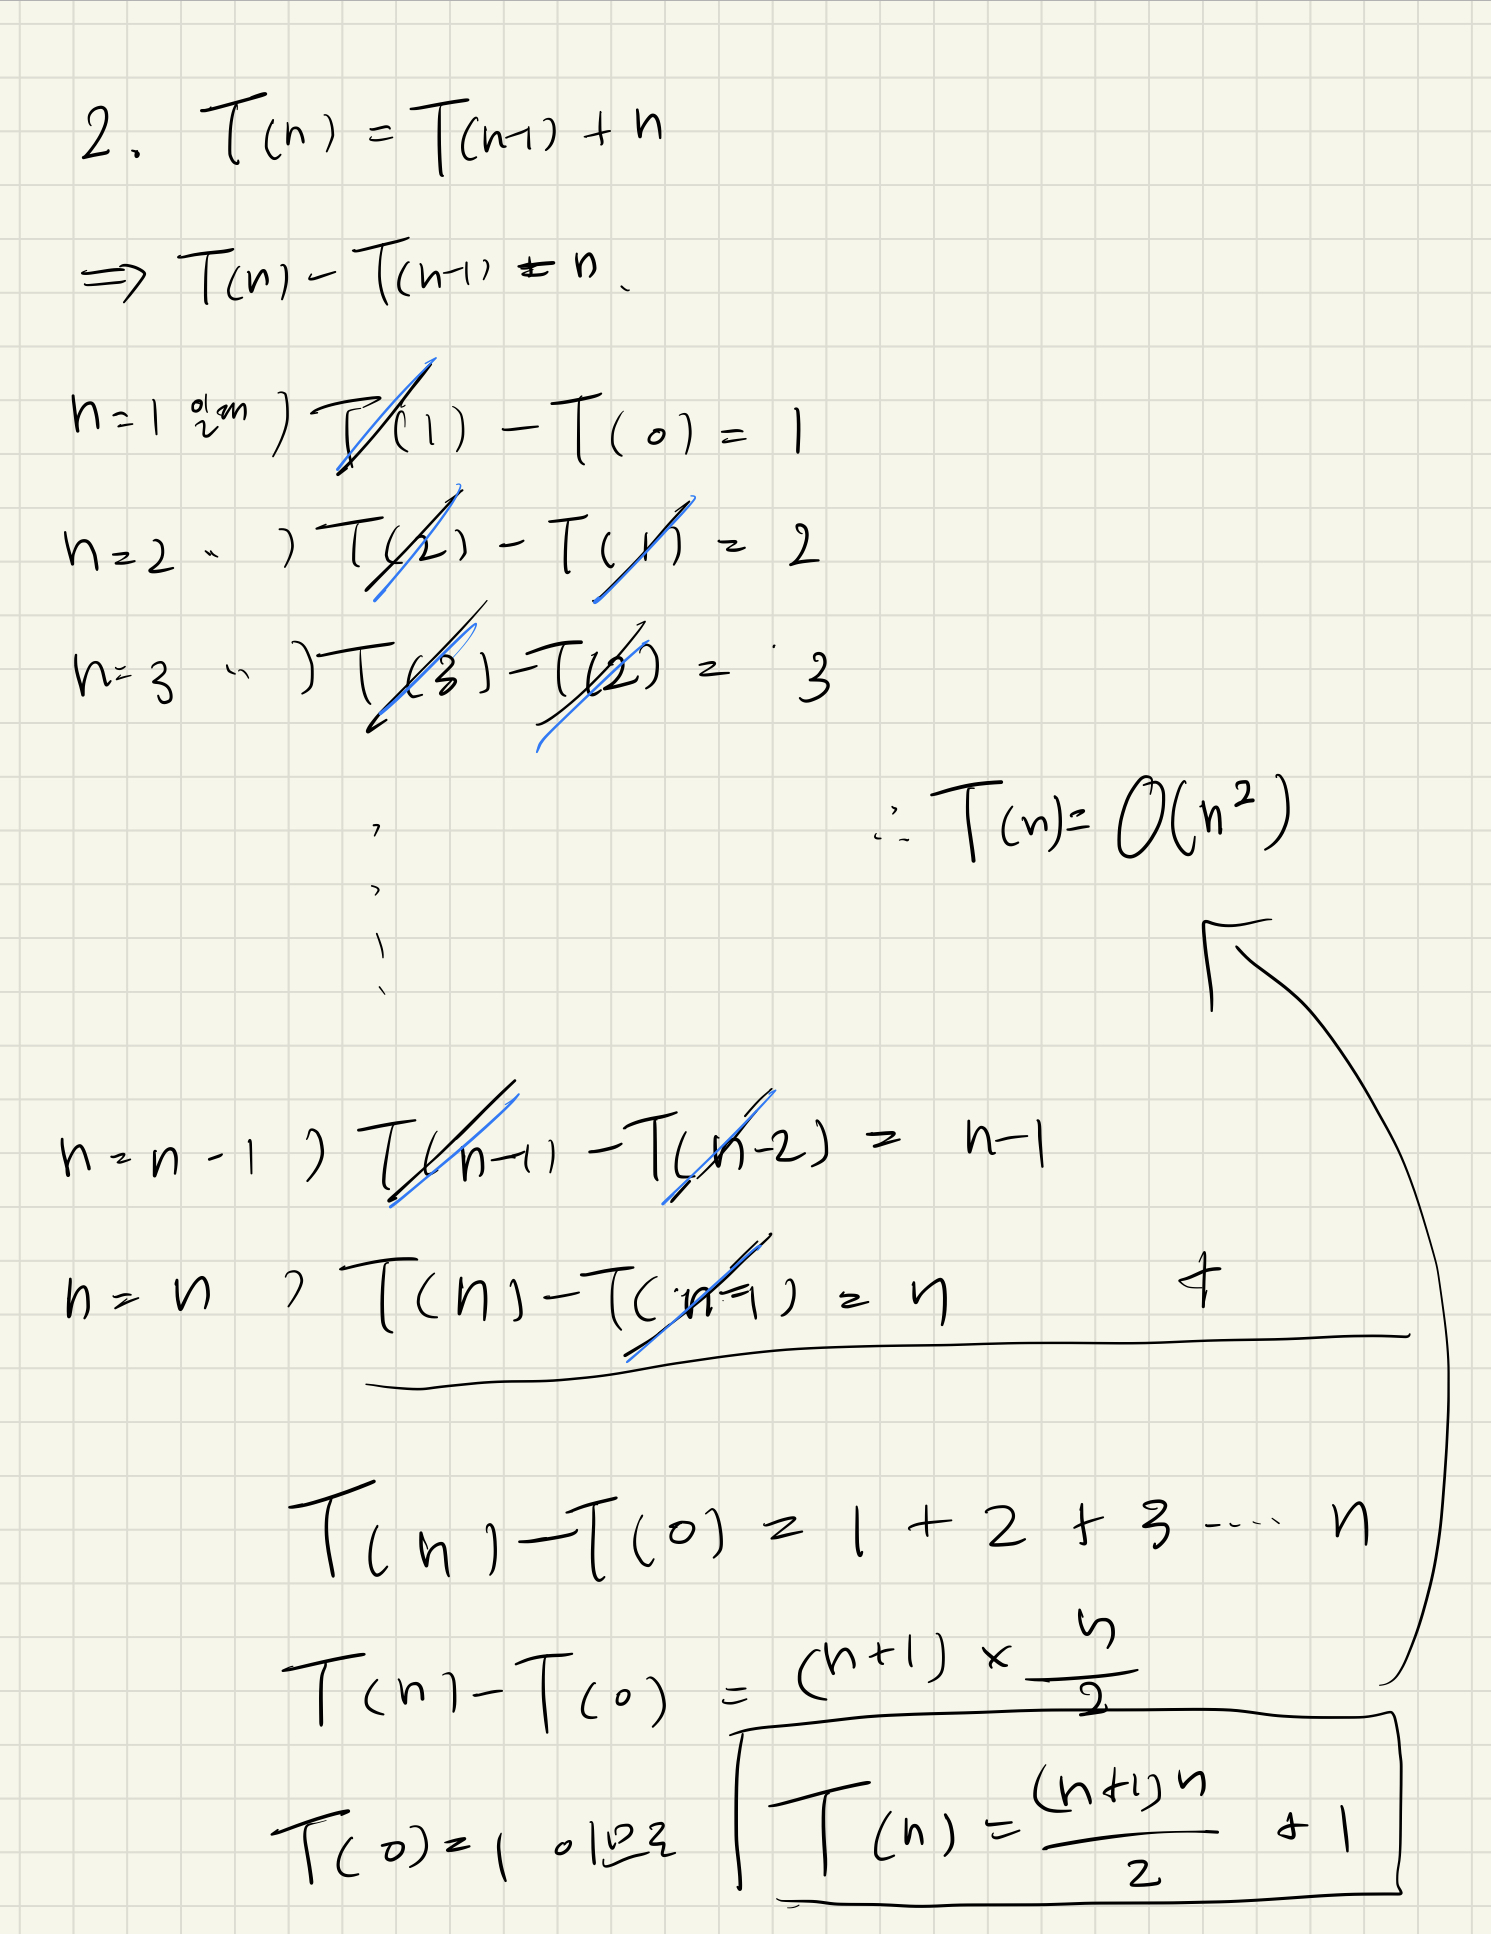 2. T(n) = T(n-1) + n
⇒ T(n) - T(n-1) = n.
n=1 일때 ) T(1) - T(0) = 1
n=2 〃 ) T(2) - T(1) = 2
n=3 〃 ) T(3) - T(2) = 3
∴ T(n) = O(n²)
n=n-1 ) T(n-1) - T(n-2) = n-1
n=n ) T(n) - T(n-1) = n +
T(n) - T(0) = 1 + 2 + 3 ---- n
T(n) - T(0) = (n+1) × n/2
T(0) = 1 이므로 T(n) = (n+1)n/2 + 1